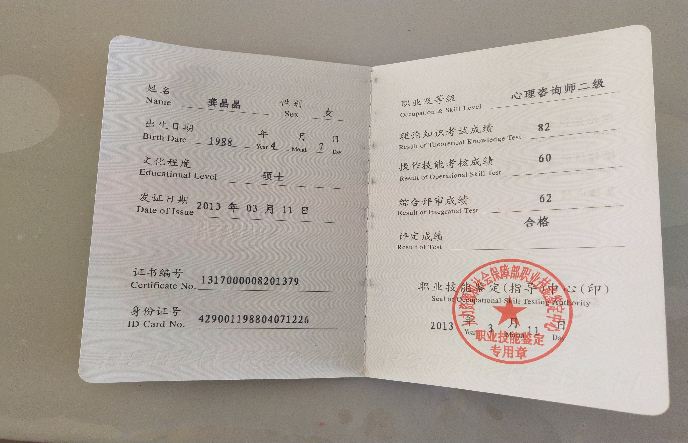 姓名 龚晶晶 性别 女
Name Sex
出生日期 1988 年 4 月 7 日
Birth Date Year Month Day
文化程度 硕士
Educational Level
发证日期 2013 年 03 月 11 日
Date of Issue
证书编号 1317000008201379
Certificate No.
身份证号 429001198804071226
ID Card No.
职业及等级 心理咨询师二级
Occupation & Skill Level
理论知识考试成绩 82
Result of Theoretical Knowledge Test
操作技能考核成绩 60
Result of Operational Skill Test
综合评审成绩 62
Result of Integrated Test
合格
评定成绩
Result of Test
职业技能鉴定(指导)中心(印)
Seal of Occupational Skill Testing Authority
2013 年 3 月 11 日
Year Month Day
职业技能鉴定
专用章